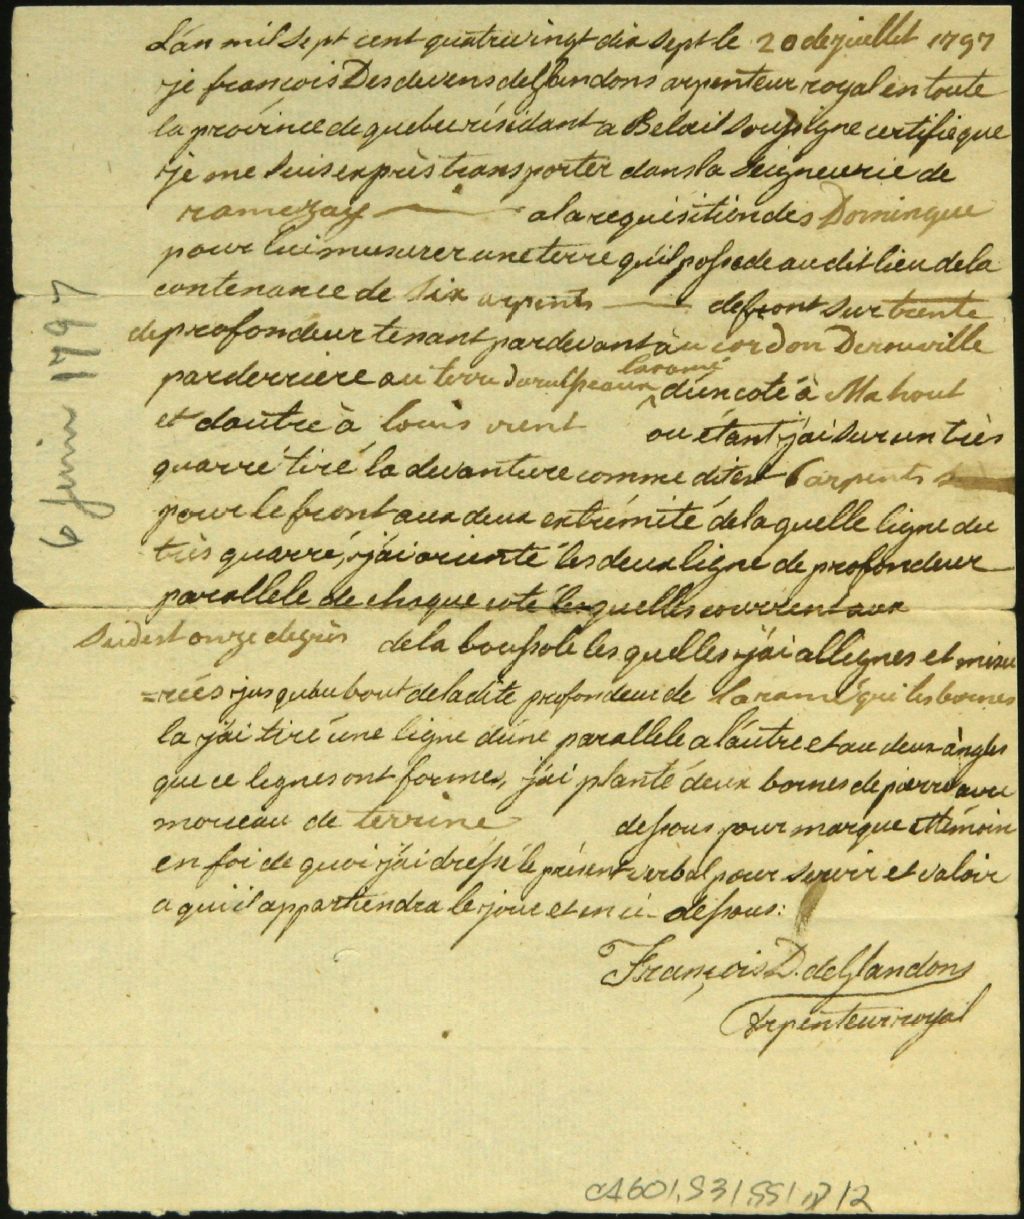 Lán mil sept cent quatrevingt dix sept le 20 de juillet 1797
je francois Desdevens deGlandons arpenteur royal en toute
la province de quebec résidant a Belœil soussigne certifie que
je me suis exprès transporter dans la seigneurie de
ramezay a la requisition des Domingue
pour lui mesurer une terre qu'il possede au dit lieu de la
contenance de six arpents de front sur trente
de profondeur tenant par devant àu cordon Derouville
par derriere au terre laramé dun coté à Mahout
et dautre à louis vient ou étant j'ai sur un très
quarré tiré la devanture comme dit est 6 arpents
pour le front aux deux extrémité de la quelle ligne du
très quarré, j'ai orienté les deux ligne de profondeur
parallele de chaque coté lesquelles courrent aux
sudest onze degrés de la boussole les quelles j'ai allignes et mesu
=rées jusqu'au bout de la dite profondeur de laramé qui les bornes
la j'ai tiré une ligne dune parallele a láutre et au deux àngles
que ce lignes ont formes, j'ai planté deux bornes de pierre avec
morceau de terrine dessous pour marque et témoin
en foi de quoi j'ai dréssé le présent verbal pour servir et valoir
a qui il appartiendra le jour et en ci dessous:
François D. deGlandons
Arpenteur royal
6 juin 1797
CA601,S31,SS1,D12